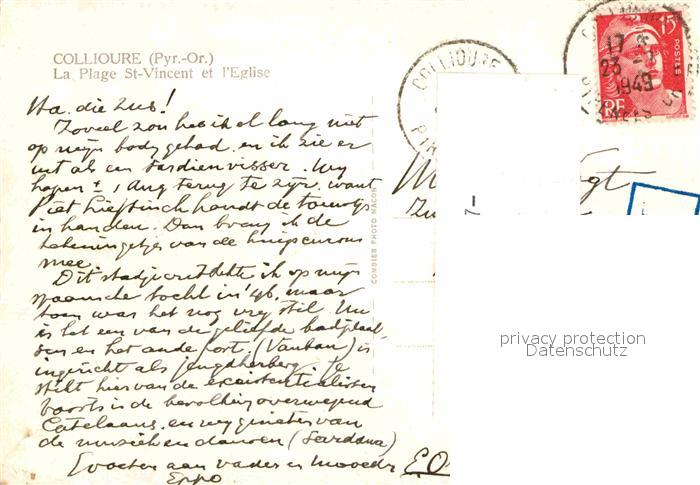 COLLIOURE (Pyr.-Or.)
La Plage St-Vincent et l'Eglise
Ha, die Zus!
Zoveel zon heb ik al lang niet
op mijn body gehad en ik zie er
uit als een sardienvisser. Wij
hopen ± 1 Aug terug te zijn, want
Piet Lieftinck houdt de touwtjes
in handen. Dan breng ik de
tekeningetjes van de
mee.
Dit stadje ontdekte ik op mijn
Spaansche tocht in '46, maar
toen was het nog vrij stil. Nu
is het een van de geliefde badplaat-
sen en het oude fort (Vauban) is
ingericht als jeugdherberg. Je
stikt hier van de existentialisten
boorts is de bevolking overwegend
Catelaans, en wij genieten van
de muziek en dansen (Sardana)
Groeten aan vader en moeder
Eppo
COMBIER PHOTO MACON
COLLIOURE
COLLIOURE
17
23
1949
15F
POSTES
RF
7-
privacy protection
Datenschutz